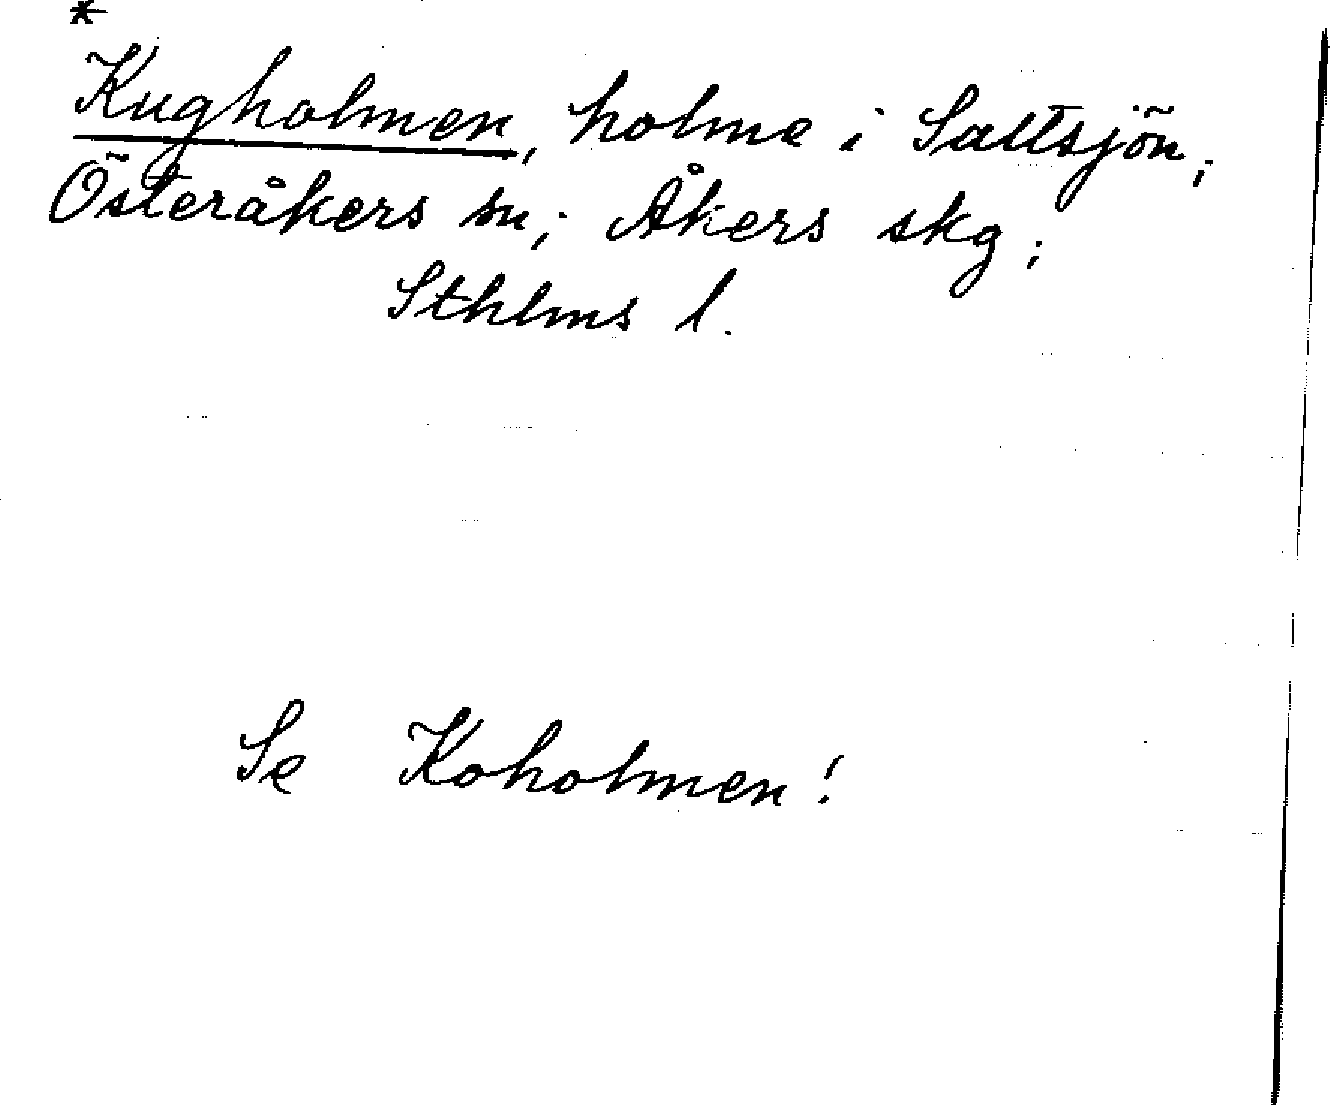 *
Kugholmen, holme i Saltsjön;
Österåkers sn; Åkers skg;
Sthlms l.
Se Koholmen!